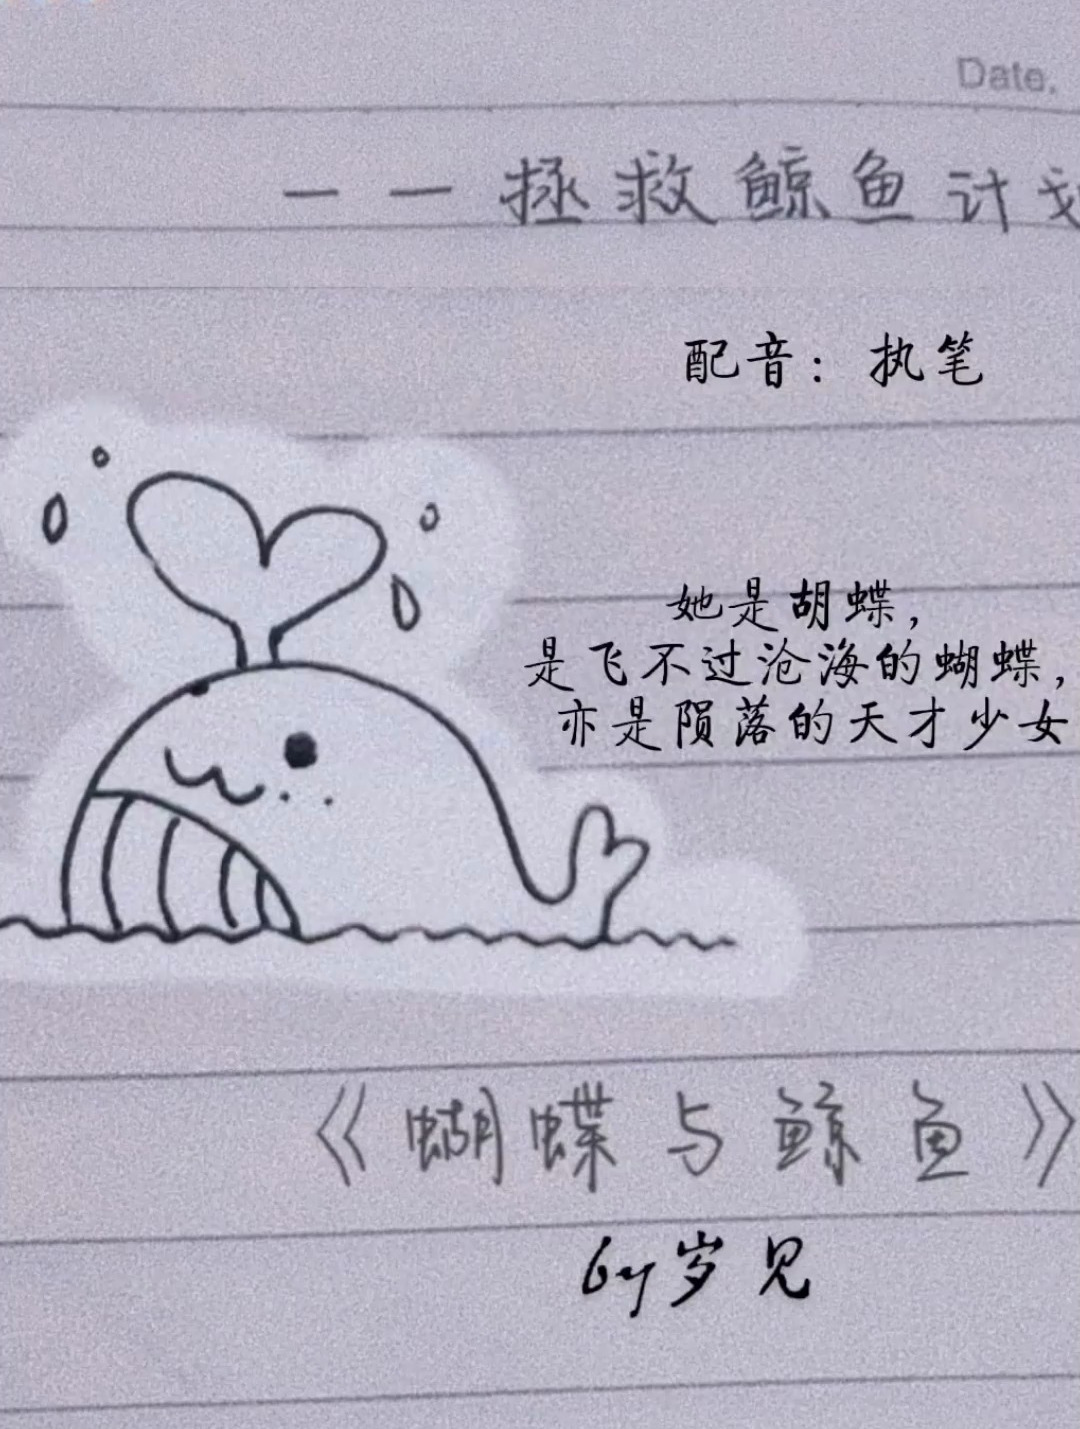 Date.
——拯救鲸鱼计划
配音：执笔
她是胡蝶，
是飞不过沧海的蝴蝶，
亦是陨落的天才少女
《蝴蝶与鲸鱼》
by岁见